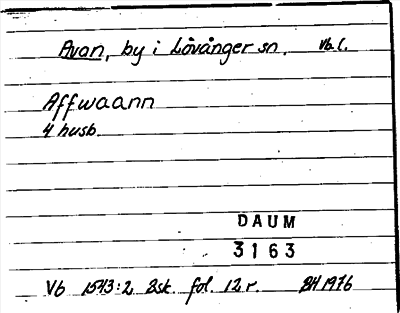 Avan, by i Lövånger sn. Vb l.
Affwaann
4 husb
DAUM
3163
Vb 1543:2 Bsk fol. 12 r. BH 1976